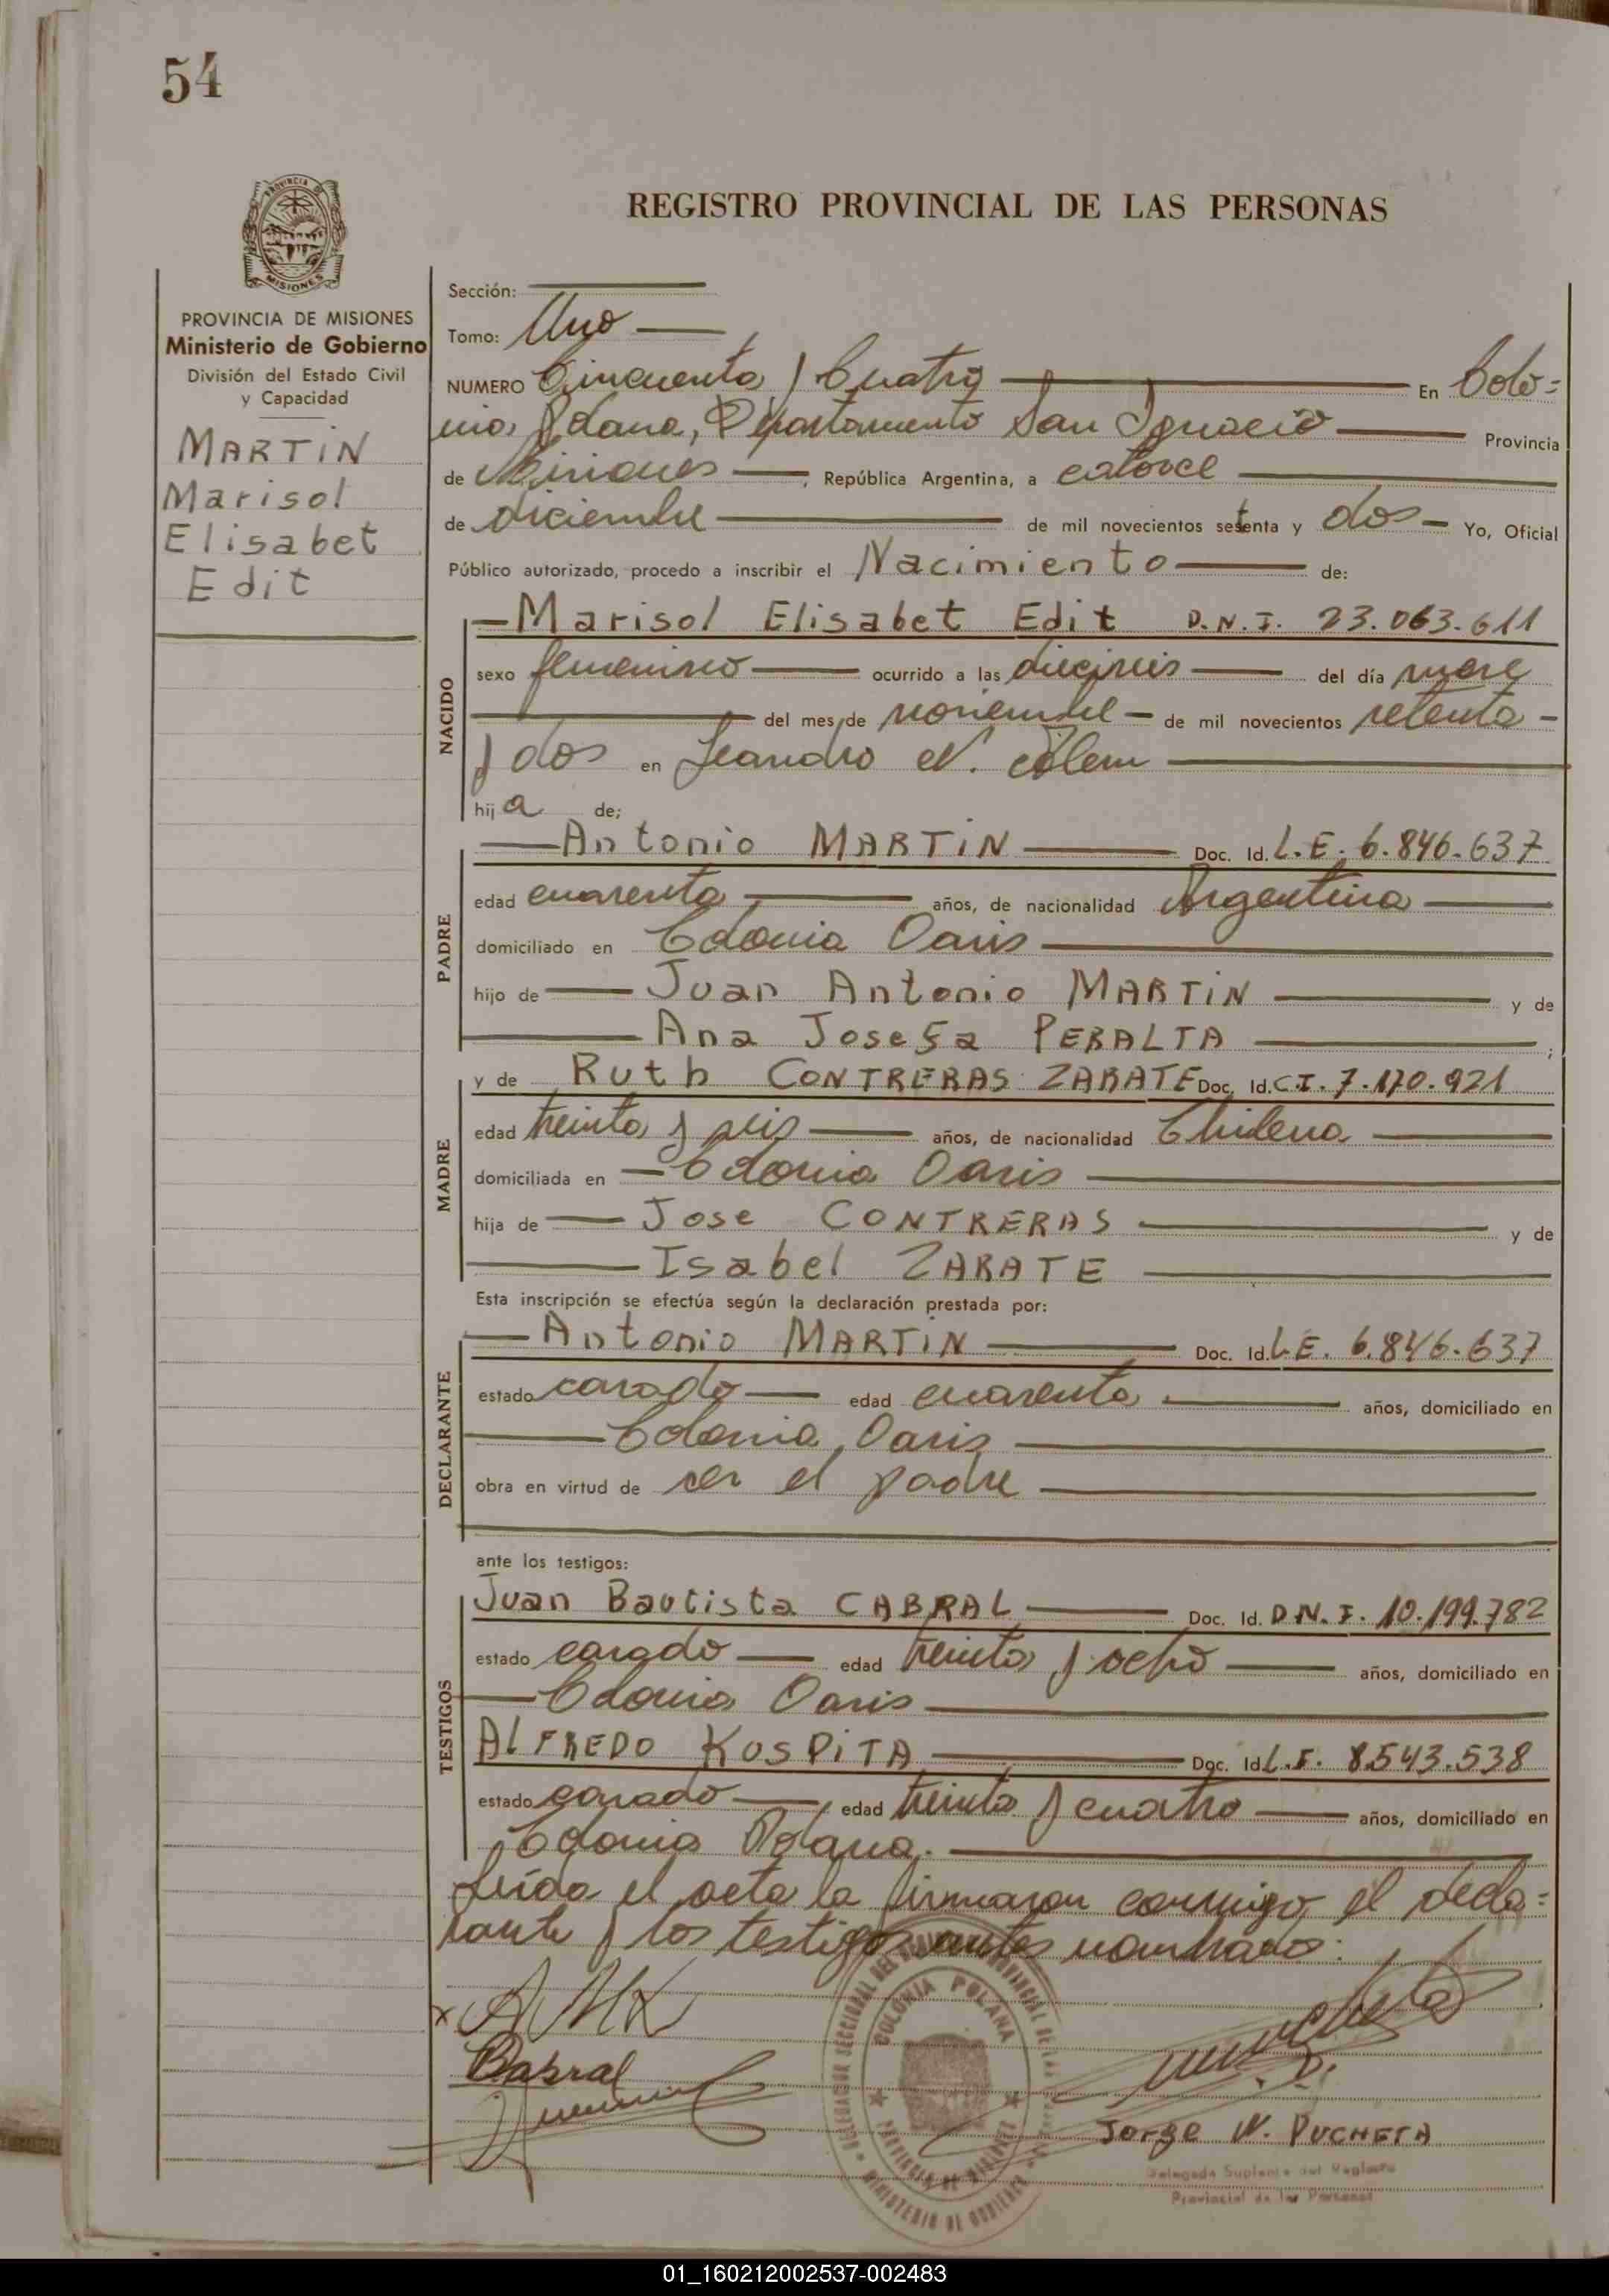 54
REGISTRO PROVINCIAL DE LAS PERSONAS
PROVINCIA DE MISIONES
MISIONES
PROVINCIA DE MISIONES
Ministerio de Gobierno
División del Estado Civil
y Capacidad
MARTIN
Marisol
Elisabet
Edit
Sección:
Tomo: Uno
NUMERO Cincuenta y Cuatro En Colo=
nia Polana, Departamento San Ignacio Provincia
de Misiones, República Argentina, a catorce
de diciembre de mil novecientos setenta y dos Yo, Oficial
Público autorizado, procedo a inscribir el Nacimiento de:
NACIDO
Marisol Elisabet Edit D.N.I. 23.063.611
sexo femenino ocurrido a las dieciseis del día nueve
del mes de noviembre de mil novecientos setenta
y dos en Leandro N. Alem
hij a de;
PADRE
Antonio MARTIN Doc. Id. L.E. 6.846.637
edad cuarenta años, de nacionalidad Argentina
domiciliado en Colonia Oasis
hijo de Juan Antonio MARTIN y de
Ana Josefa PERALTA ;
MADRE
y de Ruth CONTRERAS ZARATE Doc. Id. C.I. 7.170.921
edad treinta y seis años, de nacionalidad Chilena
domiciliada en Colonia Oasis
hija de Jose CONTRERAS y de
Isabel ZARATE
Esta inscripción se efectúa según la declaración prestada por:
DECLARANTE
Antonio MARTIN Doc. Id. L.E. 6.846.637
estado casado edad cuarenta años, domiciliado en
Colonia Oasis
obra en virtud de ser el padre
ante los testigos:
TESTIGOS
Juan Bautista CABRAL Doc. Id. D.N.I. 10.199.782
estado casado edad treinta y ocho años, domiciliado en
Colonia Oasis
ALFREDO KOSPITA Doc. Id. L.E. 8.543.538
estado casado edad treinta y cuatro años, domiciliado en
Colonia Polana.
Leída el acta la firmaron conmigo, el decla=
rante y los testigos antes nombrado:
Cabral
COLONIA POLANA
PROVINCIA DE MISIONES
MINISTERIO DE GOBIERNO
Jorge N. PUCHETA
Delegado Suplente del Registro
Provincial de las Personas
01_160212002537-002483